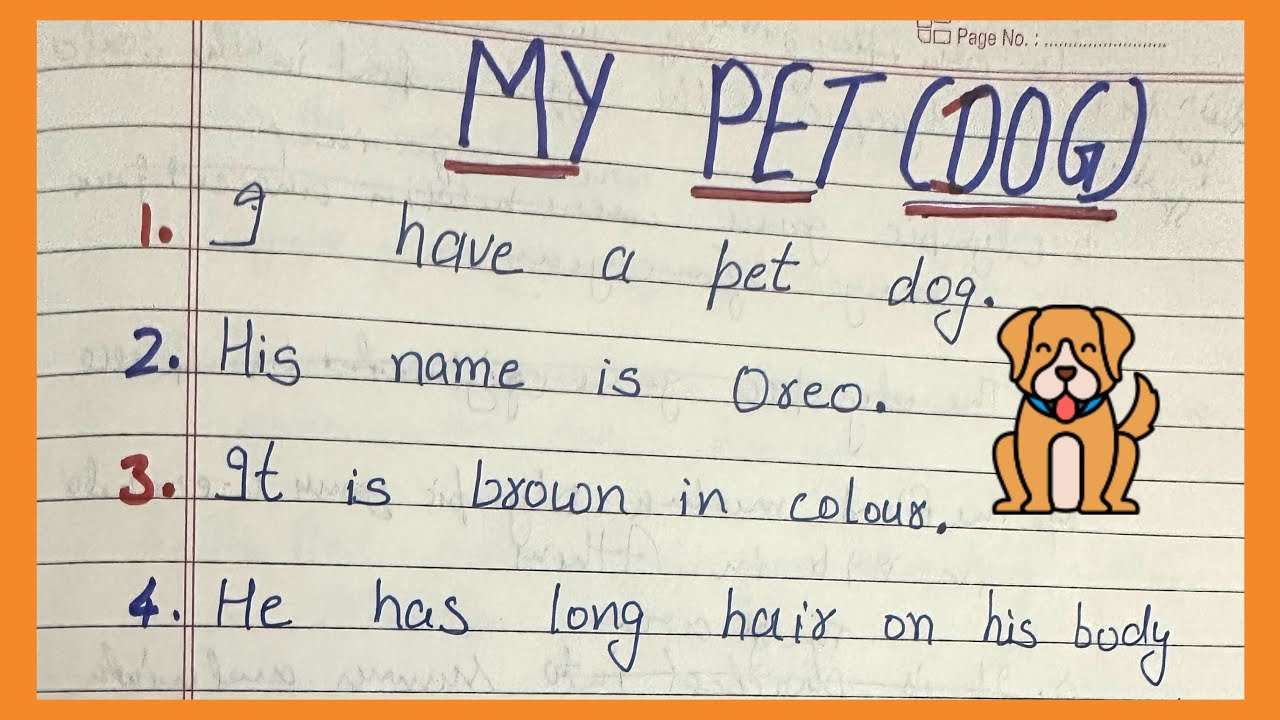 Page No. : ........................
MY PET (DOG)
1. I have a pet dog.
2. His name is Oreo.
3. It is brown in colour.
4. He has long hair on his body